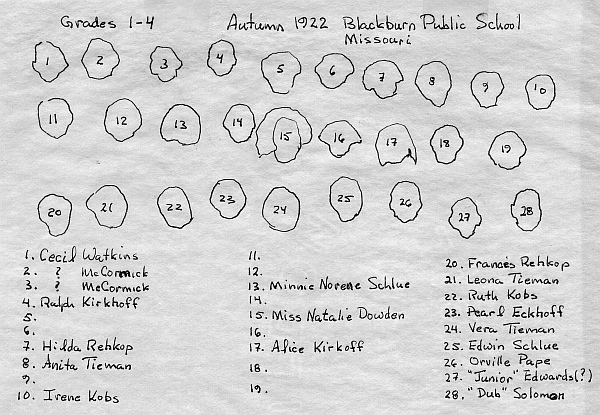 Grades 1-4 Autumn 1922 Blackburn Public School
Missouri
1 2 3 4 5 6 7 8 9 10
11 12 13 14 15 16 17 18 19
20 21 22 23 24 25 26 27 28
1. Cecil Watkins
2. ? McCormick
3. ? McCormick
4. Ralph Kirkhoff
5.
6.
7. Hilda Rehkop
8. Anita Tieman
9.
10. Irene Kobs
11.
12.
13. Minnie Norene Schlue
14.
15. Miss Natalie Dowden
16.
17. Alice Kirkoff
18.
19.
20. Frances Rehkop
21. Leona Tieman
22. Ruth Kobs
23. Pearl Eckhoff
24. Vera Tieman
25. Edwin Schlue
26. Orville Pape
27. "Junior" Edwards(?)
28. "Dub" Solomon